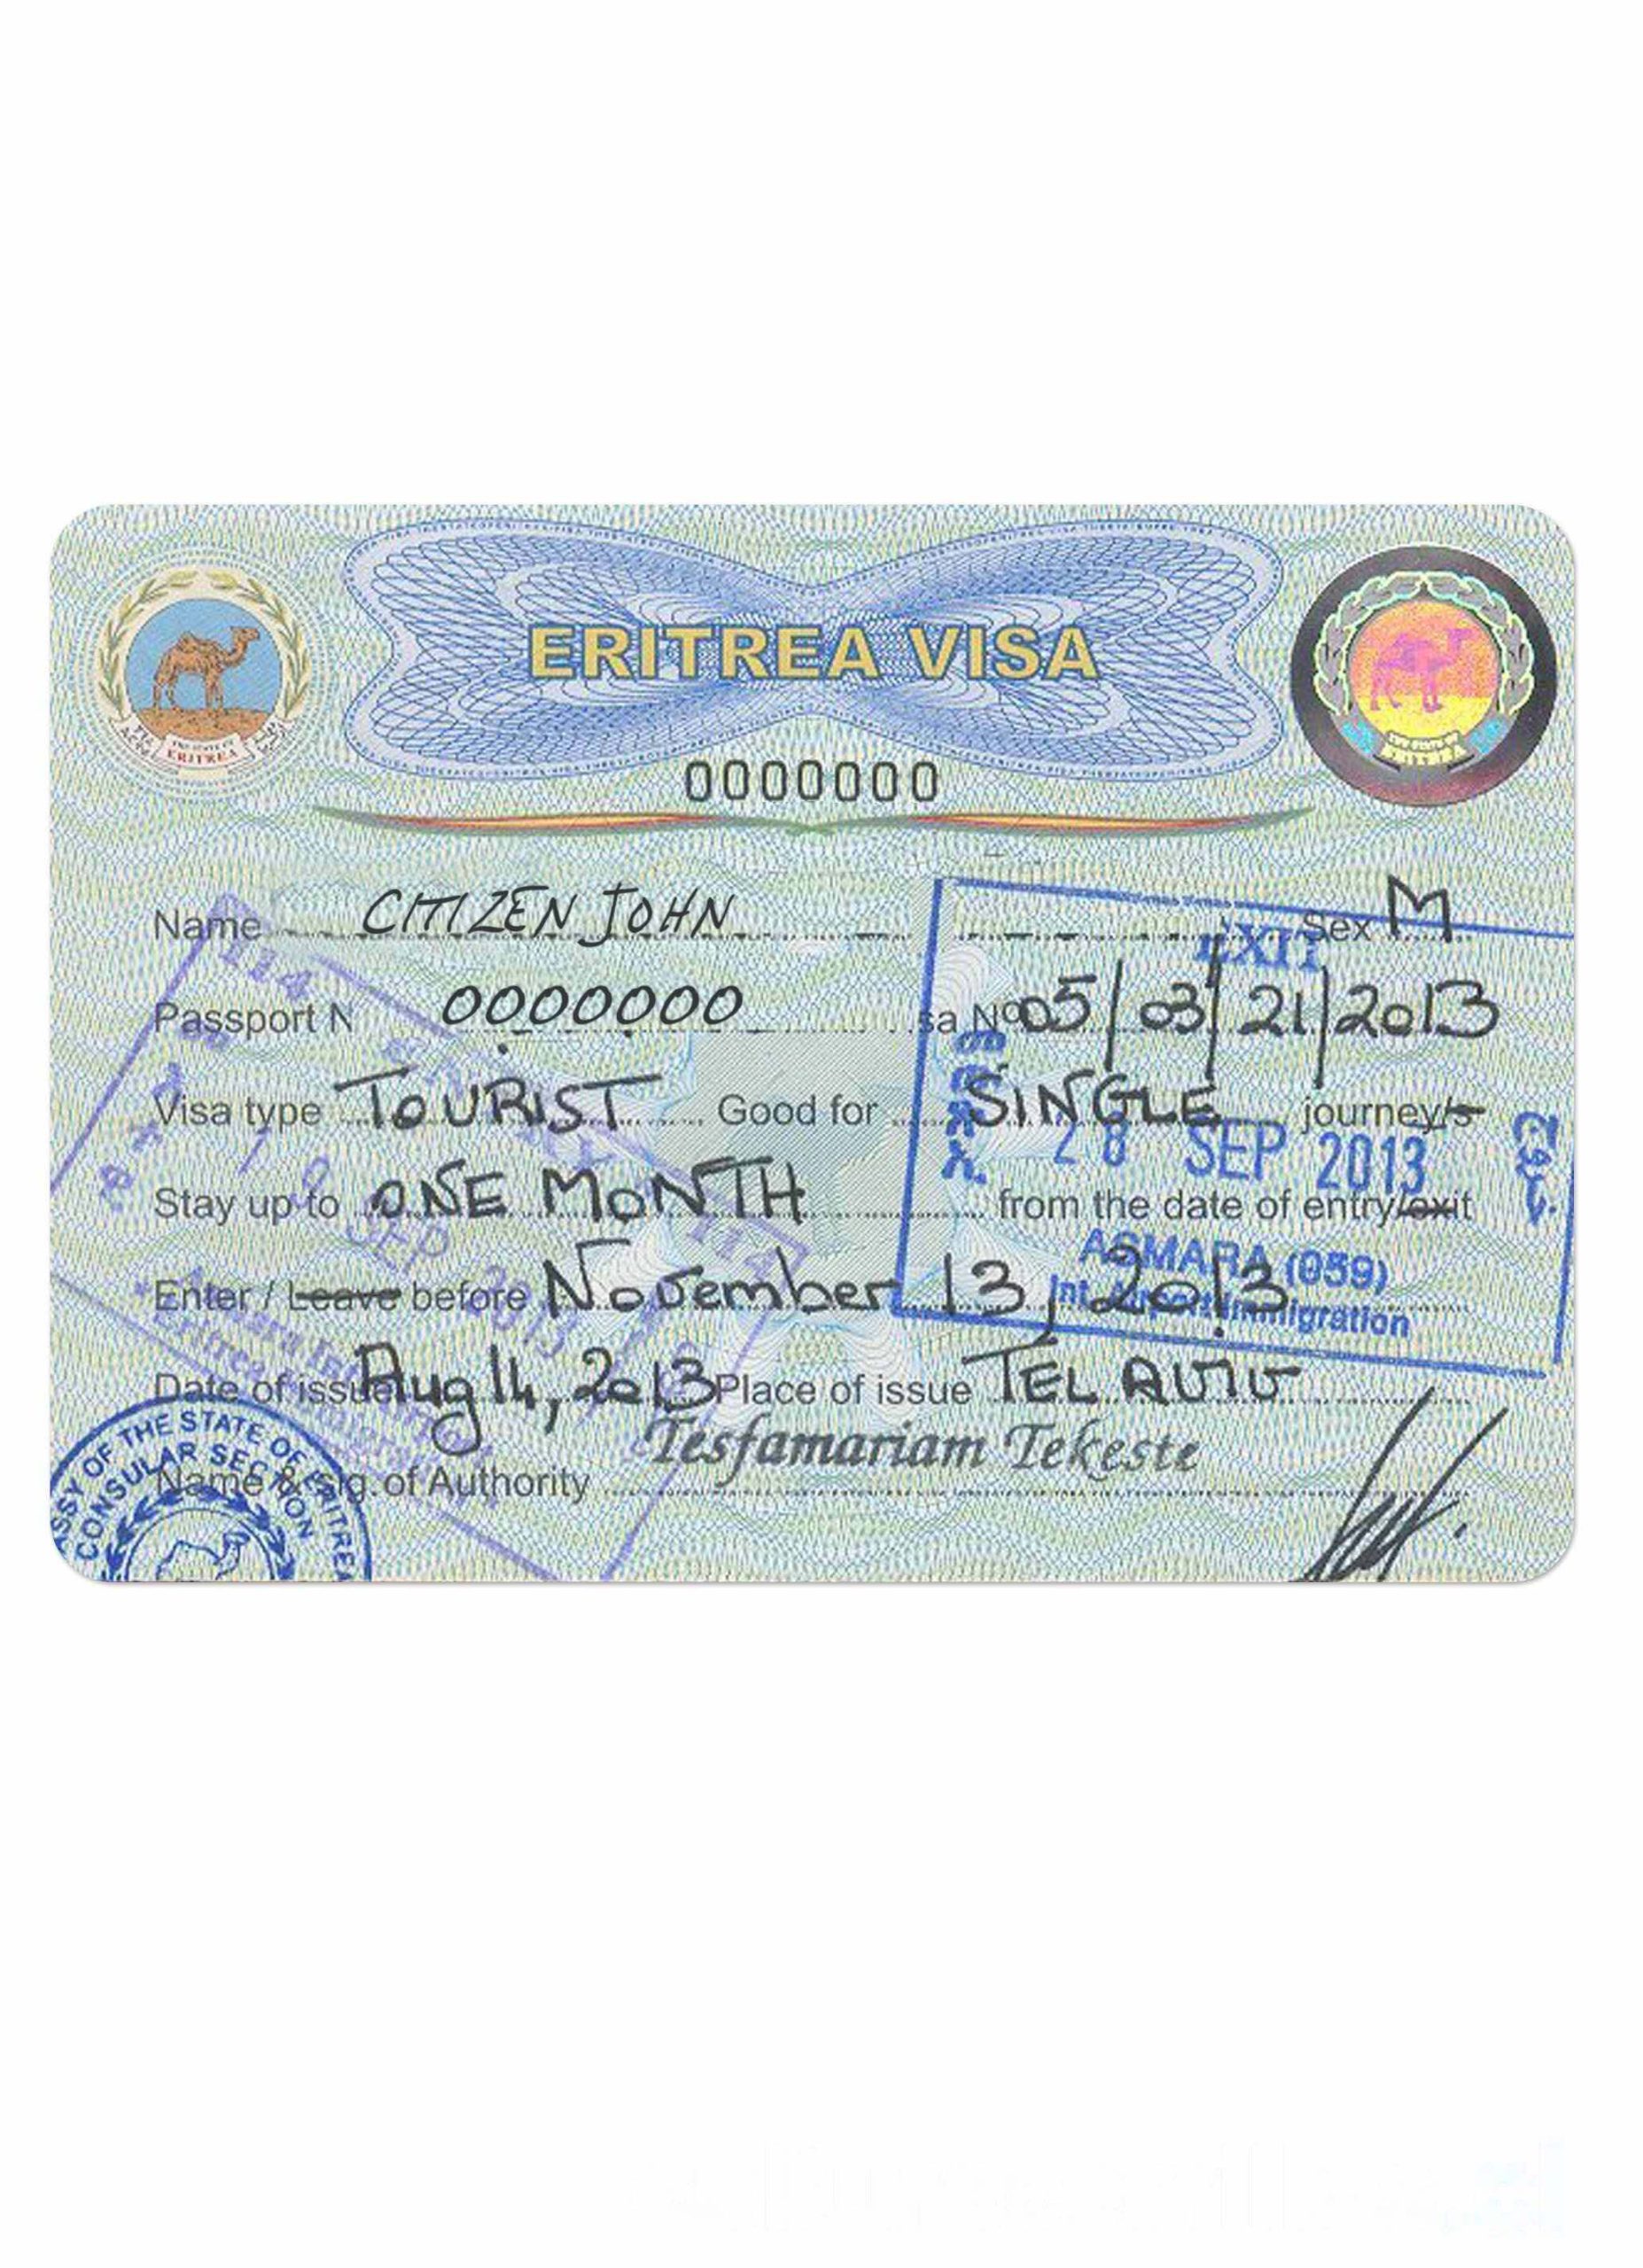 THE STATE OF
ERITREA
ERITREA VISA
THE STATE OF
ERITREA
0000000
Name CITIZEN JOHN Sex M
EXIT
114
Passport N 0000000 sa Nº 05/03/21/2013
Visa type TOURIST Good for SINGLE journey/s
28 SEP 2013
Stay up to ONE MONTH from the date of entry/exit
SEP 2013
114
ASMARA (059)
Enter / Leave before November 13, 2013
Int. Airport Immigration
Date of issue Aug 14, 2013 Place of issue TEL AVIV
Tesfamariam Tekeste
Name & sig. of Authority
ASSY OF THE STATE OF ERITREA
CONSULAR SECTION